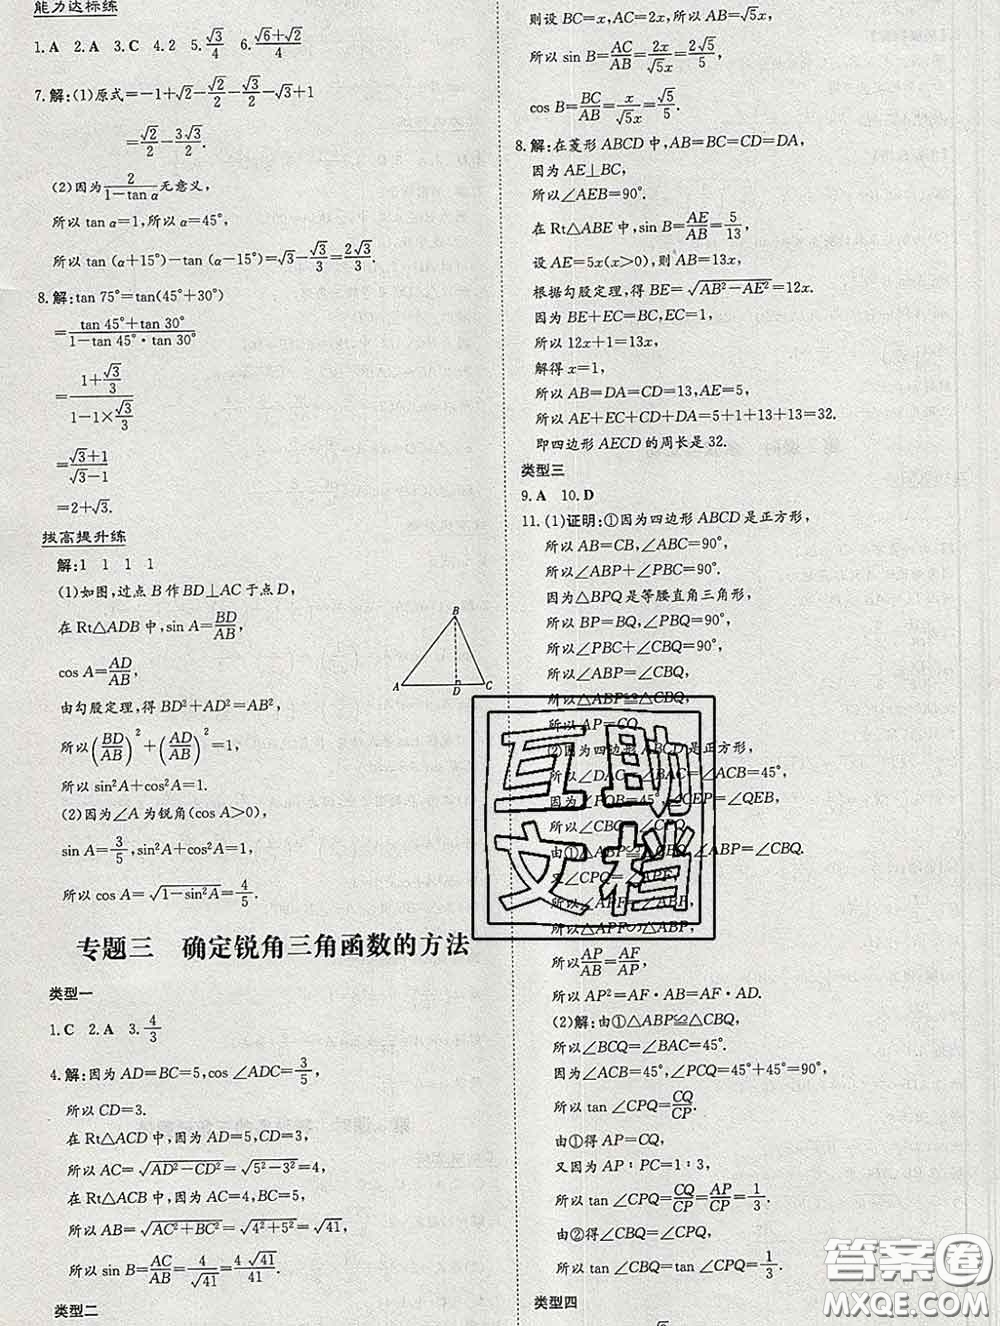 能力达标练
1. A 2. A 3. C 4. 2 5. √3/4 6. (√6+√2)/4
7. 解:(1)原式=-1+√2-√2/2-√3/2-√3+1
=√2/2-3√3/2.
(2)因为2/(1-tan α)无意义,
所以 tan α=1,所以 α=45°,
所以 tan (α+15°)-tan (α-15°)=√3-√3/3=2√3/3.
8. 解:tan 75°=tan(45°+30°)
=(tan 45°+tan 30°)/(1-tan 45°·tan 30°)
=(1+√3/3)/(1-1×√3/3)
=(√3+1)/(√3-1)
=2+√3.
拔高提升练
解:1 1 1 1
(1)如图,过点 B 作 BD⊥AC 于点 D,
在 Rt△ADB 中,sin A=BD/AB,
cos A=AD/AB,
由勾股定理,得 BD²+AD²=AB²,
所以(BD/AB)²+(AD/AB)²=1,
所以 sin²A+cos²A=1.
(2)因为∠A 为锐角(cos A>0),
sin A=3/5,sin²A+cos²A=1,
所以 cos A=√(1-sin²A)=4/5.
B
A D C
专题三 确定锐角三角函数的方法
类型一
1. C 2. A 3. 4/3
4. 解:因为 AD=BC=5,cos ∠ADC=3/5,
所以 CD=3.
在 Rt△ACD 中,因为 AD=5,CD=3,
所以 AC=√(AD²-CD²)=√(5²-3²)=4,
在 Rt△ACB 中,因为 AC=4,BC=5,
所以 AB=√(AC²+BC²)=√(4²+5²)=√41,
所以 sin B=AC/AB=4/√41=4√41/41.
类型二
则设 BC=x,AC=2x,所以 AB=√5x,
所以 sin B=AC/AB=2x/√5x=2√5/5,
cos B=BC/AB=x/√5x=√5/5.
8. 解:在菱形 ABCD 中,AB=BC=CD=DA,
因为 AE⊥BC,
所以∠AEB=90°.
在 Rt△ABE 中,sin B=AE/AB=5/13,
设 AE=5x(x>0),则 AB=13x,
根据勾股定理,得 BE=√(AB²-AE²)=12x.
因为 BE+EC=BC,EC=1,
所以 12x+1=13x,
解得 x=1,
所以 AB=DA=CD=13,AE=5,
所以 AE+EC+CD+DA=5+1+13+13=32.
即四边形 AECD 的周长是 32.
类型三
9. A 10. D
11. (1)证明:①因为四边形 ABCD 是正方形,
所以 AB=CB,∠ABC=90°,
所以∠ABP+∠PBC=90°,
因为△BPQ 是等腰直角三角形,
所以 BP=BQ,∠PBQ=90°,
所以∠PBC+∠CBQ=90°,
所以∠ABP=∠CBQ,
所以△ABP≌△CBQ,
所以 AP=CQ.
②因为四边形 ABCD 是正方形,
所以∠DAC=∠BAC=∠ACB=45°,
因为∠PQB=45°,∠CEP=∠QEB,
所以∠CBQ=∠CPQ,
由①△ABP≌△CBQ,∠ABP=∠CBQ.
又∠CPQ=∠APF,
所以∠APF=∠ABP,
所以△APF∽△ABP,
所以AP/AB=AF/AP,
所以 AP²=AF·AB=AF·AD.
(2)解:由①△ABP≌△CBQ,
所以∠BCQ=∠BAC=45°.
因为∠ACB=45°,∠PCQ=45°+45°=90°,
所以 tan ∠CPQ=CQ/CP,
由①得 AP=CQ,
又因为 AP∶PC=1∶3,
所以 tan ∠CPQ=CQ/CP=AP/CP=1/3.
由②得∠CBQ=∠CPQ,
所以 tan ∠CBQ=tan ∠CPQ=1/3.
类型四
互助
文档
答案圈
MXQE.COM